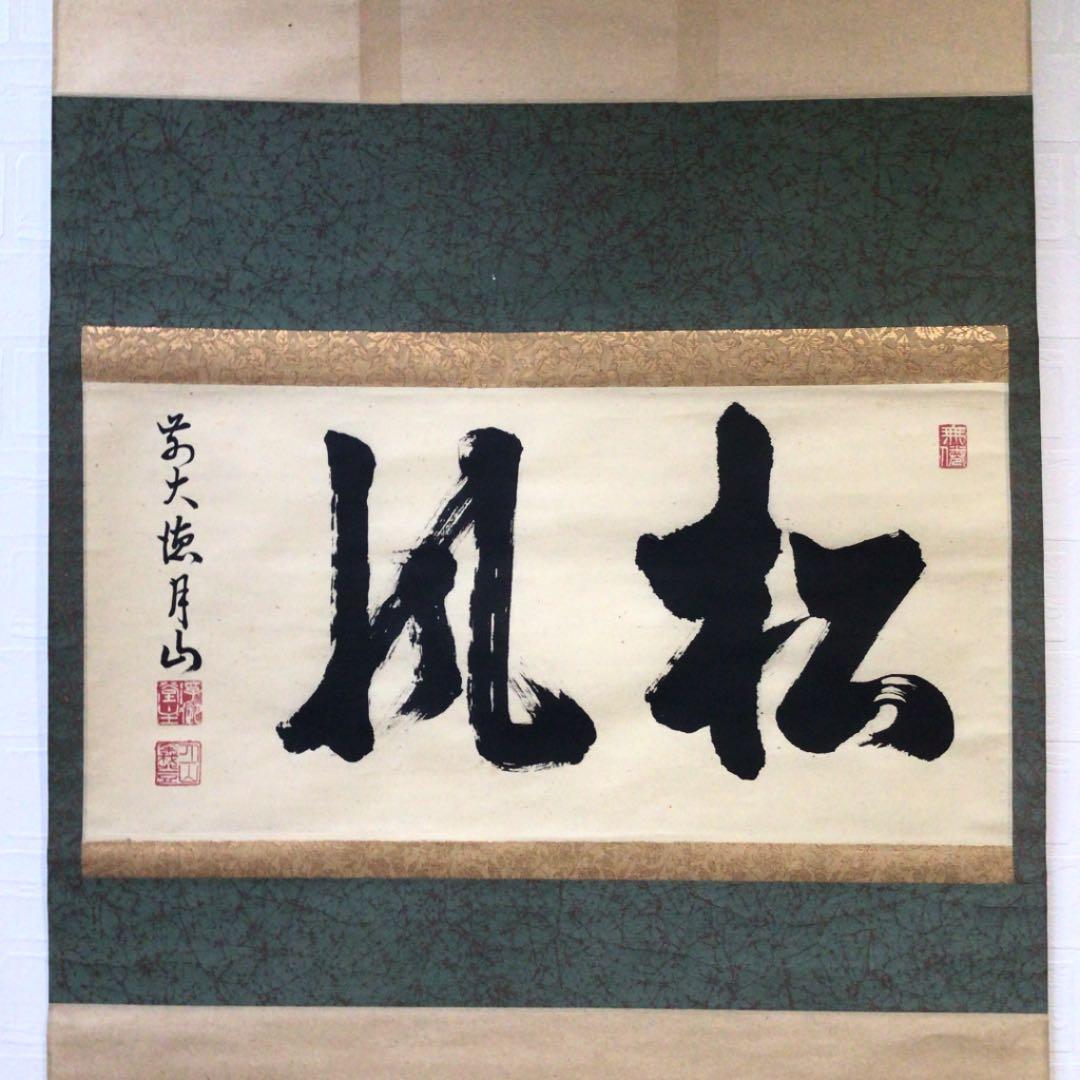 松風
前大徳月山